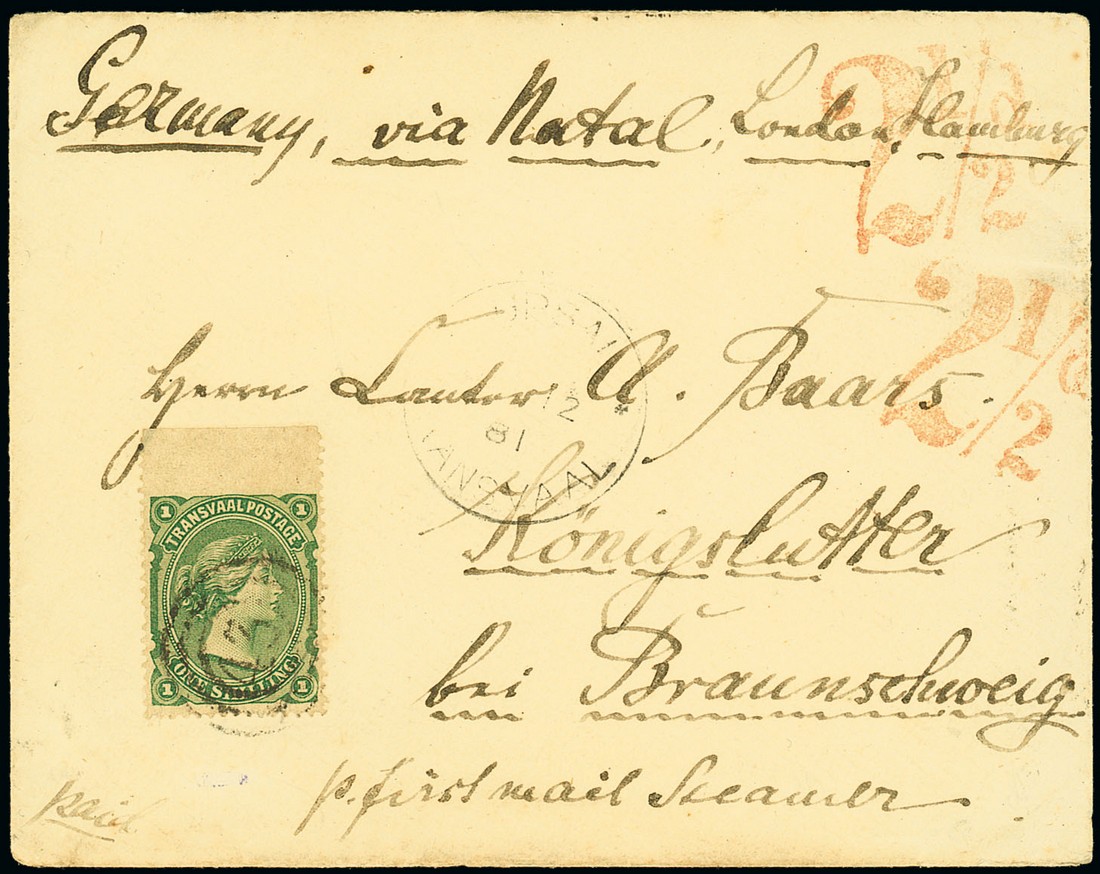 Germany, via Natal, London, Hamburg
2 1/2
2 1/2
Herrn Cantor A. Baars.
12
81
TRANSVAAL
Königslutter
bei Braunschweig
p. first mail Steamer
paid
1 TRANSVAAL POSTAGE 1
1 ONE SHILLING 1